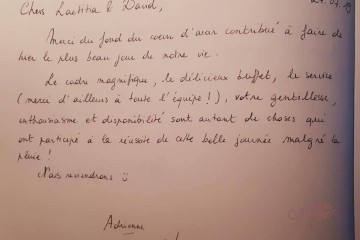 Chers Laetitia & David,
Merci du fond du coeur d'avoir contribué à faire de
hier le plus beau jour de notre vie.
Le cadre magnifique, le délicieux buffet, le service
(merci d'ailleurs à toute l'équipe!), votre gentillesse,
enthousiasme et disponibilité sont autant de choses qui
ont participé à la réussite de cette belle journée malgré la
pluie!
Nous reviendrons
Adrienne